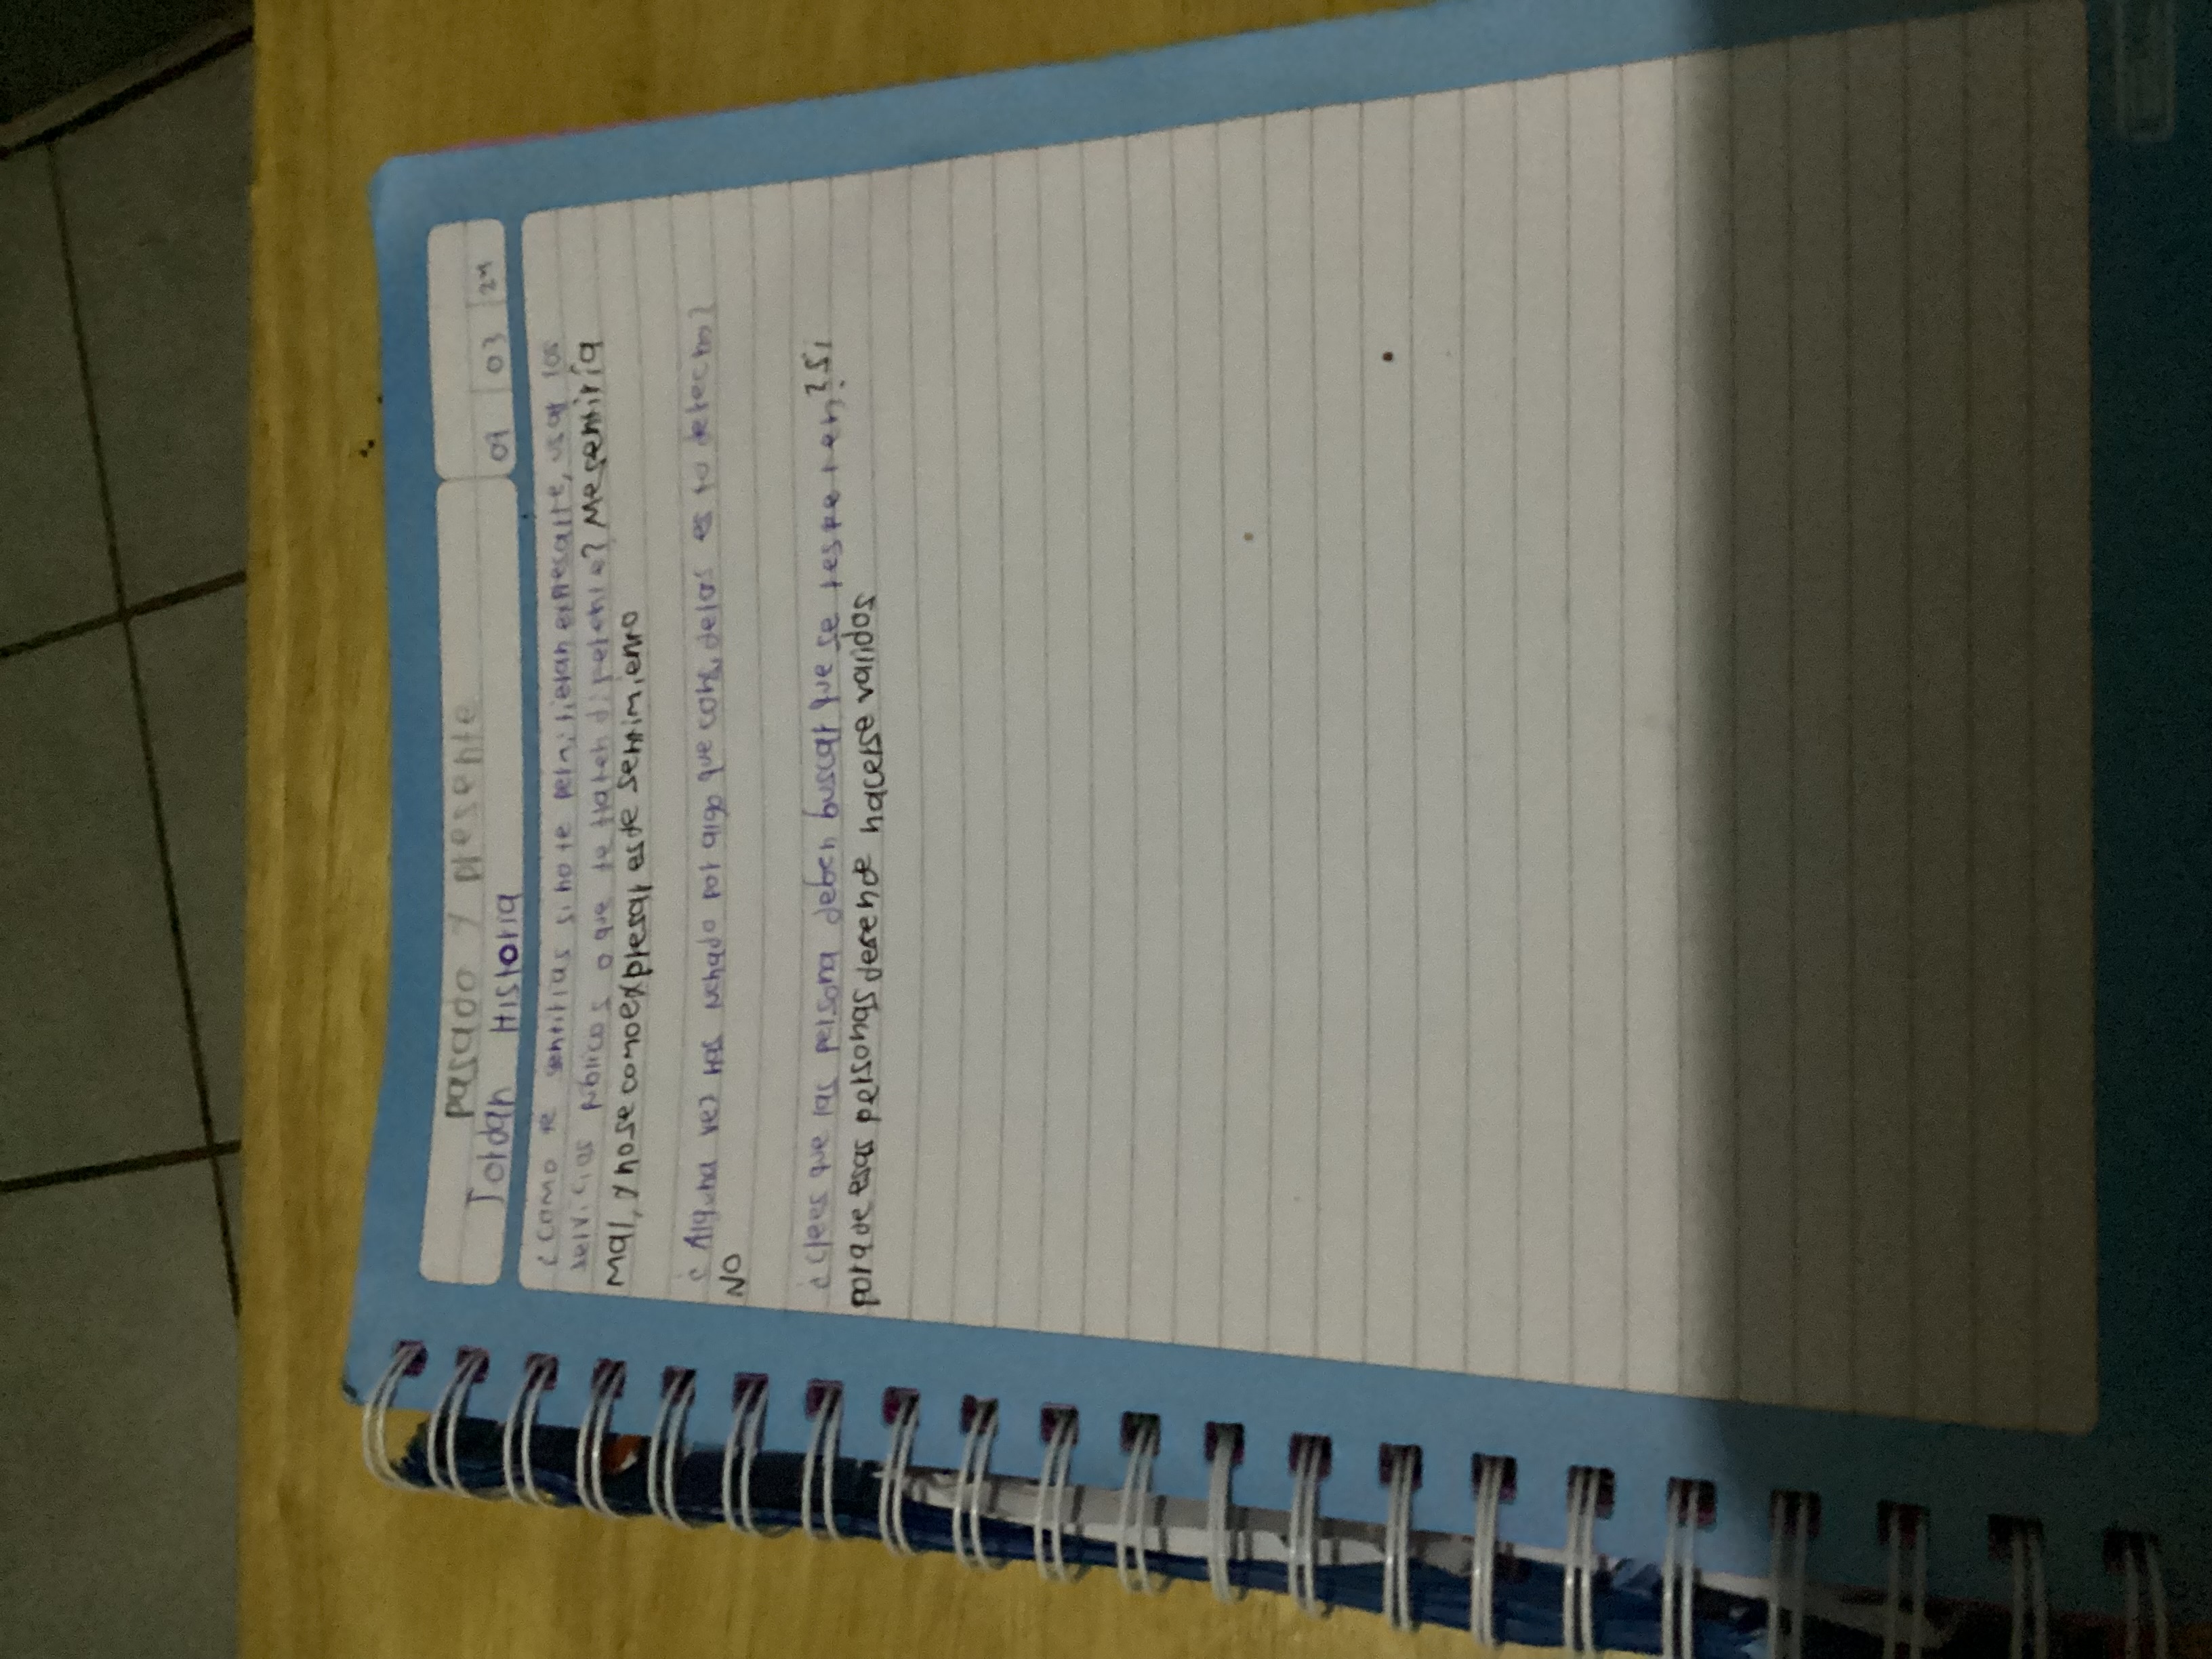 pasado y presente
Jordan Historia
09 03 24
¿Como te sentirias si no te permitieran expresarte, usar los
servicios publicos o que te traten diferente? Me sentiría
Mal, y no se como expresar este sentimiento
¿Alguna vez has luchado por algo que considelas es tu derecho?
NO
¿Crees que las persona deben buscar que se respeten? Si
porque esas personas deseende hacerse validos